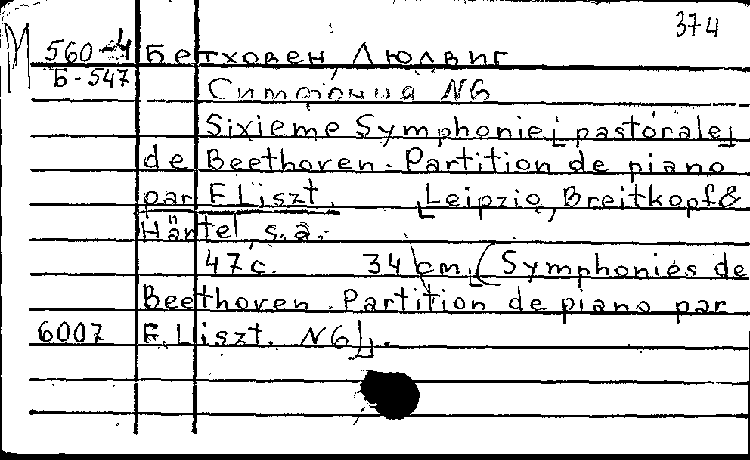 374
М 560-4 Бетховен Людвиг
Б-547
Симфония N6
Sixieme Symphonie [pastorale]
de Beethoven. Partition de piano
par F. Liszt. Leipzig, Breitkopf &
Härtel, s.a.
47 с. 34 cm. (Symphonies de
Beethoven. Partition de piano par
6007 F. Liszt. N6].